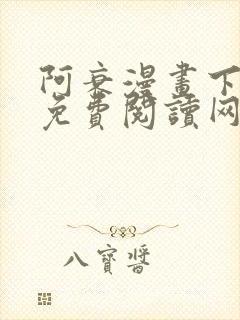 阿衰漫畫下
免費閱讀网
八寶醬